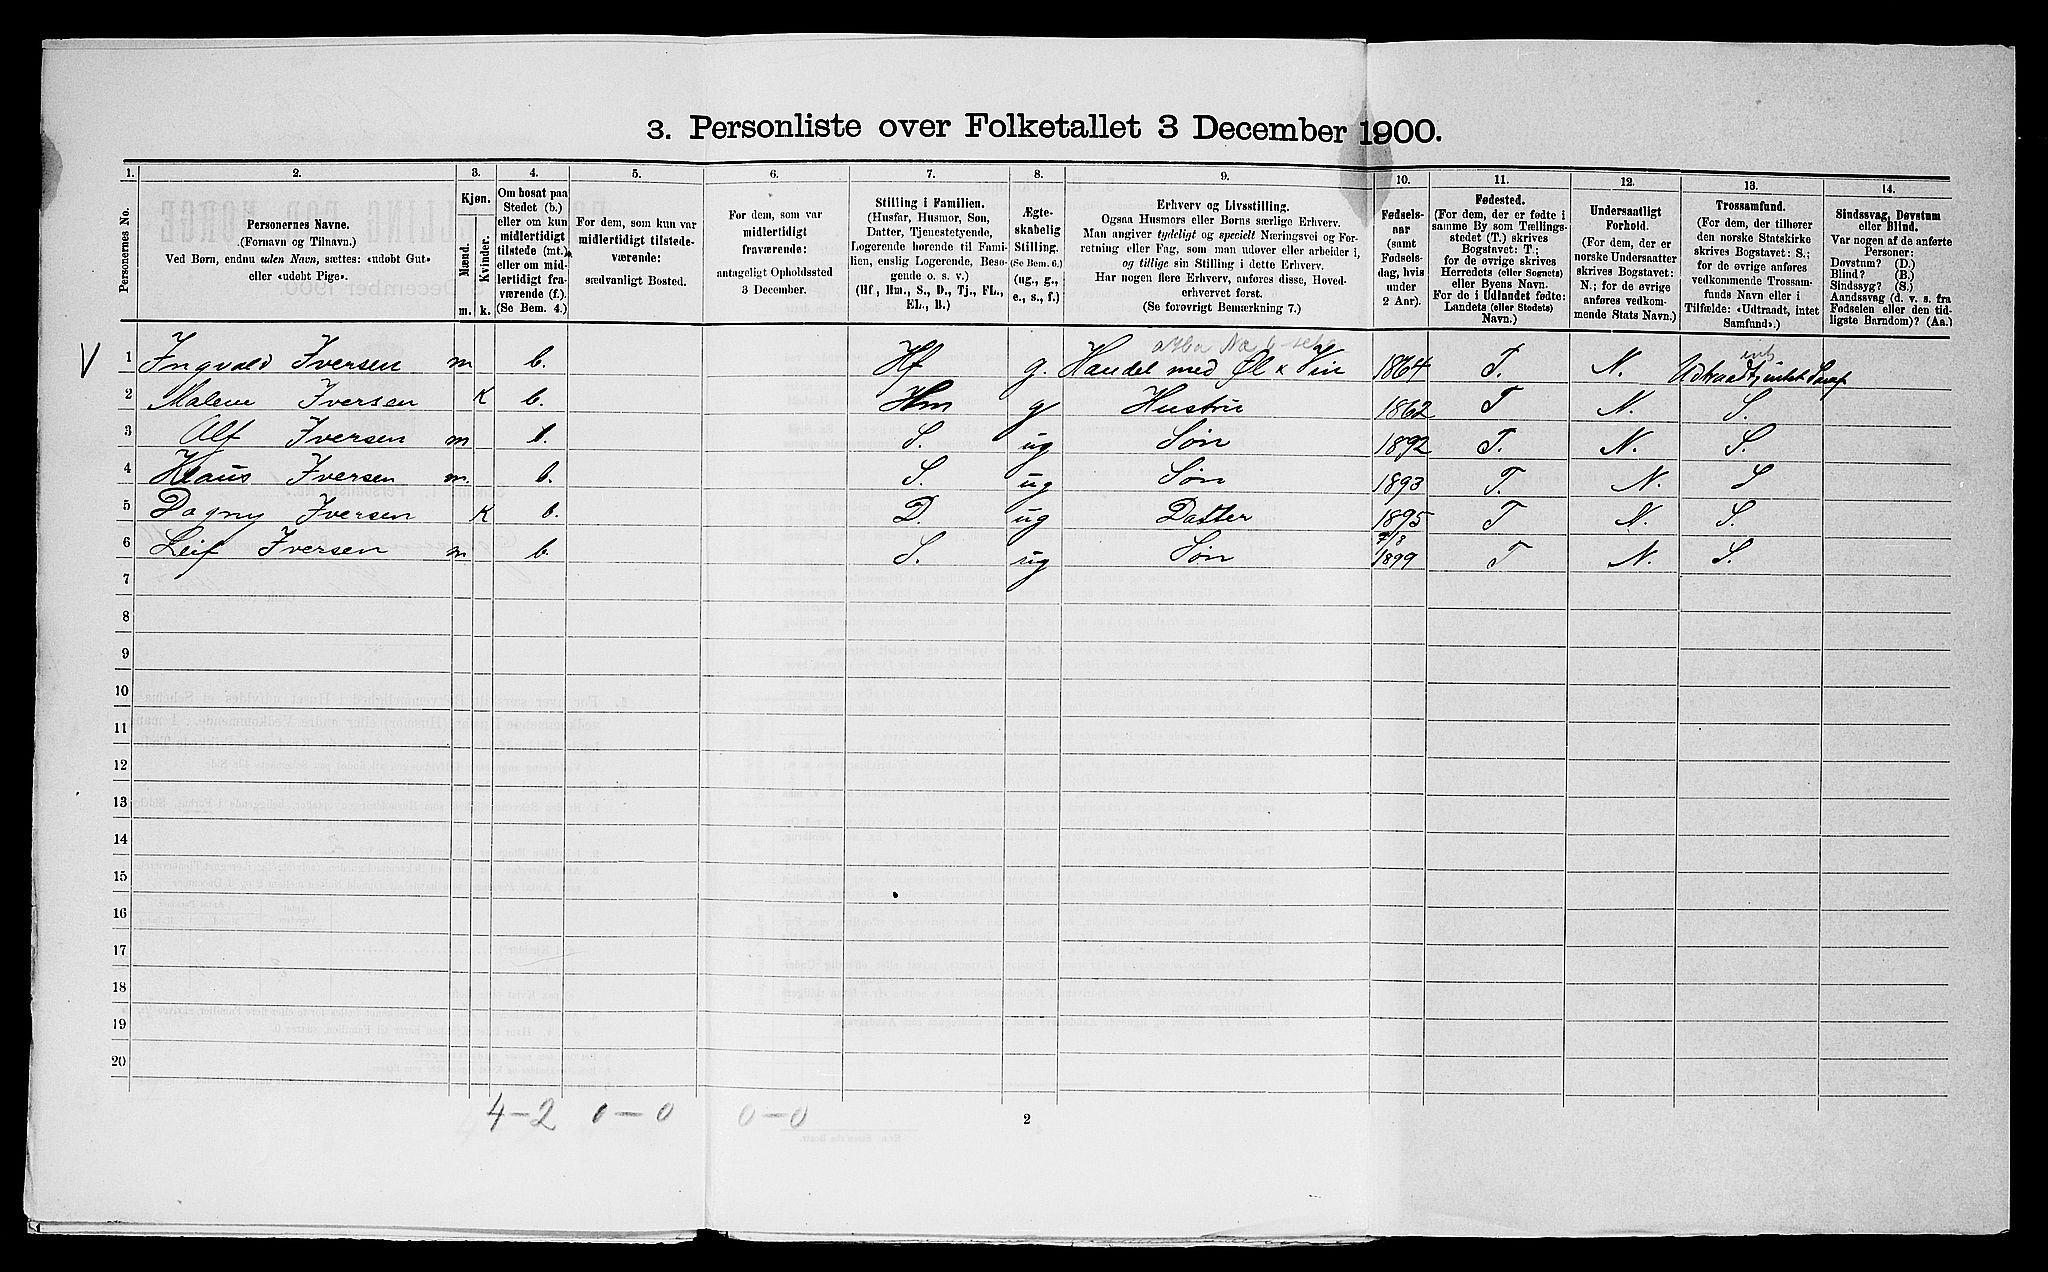 3. Personliste over Folketallet 3 December 1900.
1. 2. 3. 4. 5. 6. 7. 8. 9. 10. 11. 12. 13. 14.
Personernes No.
Personernes Navne.
(Fornavn og Tilnavn.)
Ved Børn, endnu uden Navn, sættes: «udøbt Gut»
eller «udøbt Pige».
Kjøn.
Mænd.
Kvinder.
m. k.
Om bosat paa
Stedet (b.)
eller om kun
midlertidigt
tilstede (mt.)
eller om mid-
lertidigt fra-
værende (f.).
(Se Bem. 4.)
For dem, som kun var
midlertidigt tilstede-
værende:
sædvanligt Bosted.
For dem, som var
midlertidigt
fraværende:
antageligt Opholdssted
3 December.
Stilling i Familien.
(Husfar, Husmor, Søn,
Datter, Tjenestetyende,
Logerende hørende til Fami-
lien, enslig Logerende, Besø-
gende o. s. v.)
(Hf., Hm., S., D., Tj., FL.,
EL., B.)
Ægte-
skabelig
Stilling.
(Se Bem. 6.)
(ug., g.,
e., s., f.)
Erhverv og Livsstilling.
Ogsaa Husmors eller Børns særlige Erhverv.
Man angiver tydeligt og specielt Næringsvei og For-
retning eller Fag, som man udøver eller arbeider i,
og tillige sin Stilling i dette Erhverv.
Har nogen flere Erhverv, anføres disse, Hoved-
erhvervet først.
(Se forøvrigt Bemærkning 7.)
Fødsels-
aar
(samt
Fødsels-
dag, hvis
under
2 Aar).
Fødested.
(For dem, der er fødte i
samme By som Tællings-
stedet (T.) skrives
Bogstavet: T.;
for de øvrige skrives
Herredets (eller Sognets)
eller Byens Navn.
For de i Udlandet fødte:
Landets (eller Stedets)
Navn.)
Undersaatligt
Forhold.
(For dem, der er
norske Undersaatter
skrives Bogstavet:
N.; for de øvrige
anføres vedkom-
mende Stats Navn.)
Trossamfund.
(For dem, der tilhører
den norske Statskirke
skrives Bogstavet: S.;
for de øvrige anføres
vedkommende Trossam-
funds Navn eller i
Tilfælde: «Udtraadt, intet
Samfund».)
Sindssvag, Døvstum
eller Blind.
Var nogen af de anførte
Personer:
Døvstum? (D.)
Blind? (B.)
Sindssyg? (S.)
Aandssvag (d. v. s. fra
Fødselen eller den tid-
ligste Barndom)? (Aa.)
V 1 Ingvald Iversen m b. Hf g. Handel med Øl & Vin 1864 T. N. Udtraadt, intet Samf
2 Malene Iversen K b. Hm g Hustru 1862 T N. S.
3 Alf Iversen m b. S. ug Søn 1892 T. N. S.
4 Klaus Iversen m b. S. ug Søn 1893 T. N. S
5 Dagny Iversen K b. D. ug Datter 1895 T N. S.
6 Leif Iversen m b. S. ug Søn 7/8 1899 T N. S.
7
8
9
10
11
12
13
14
15
16
17
18
19
20
4-2 0-0 0-0
2